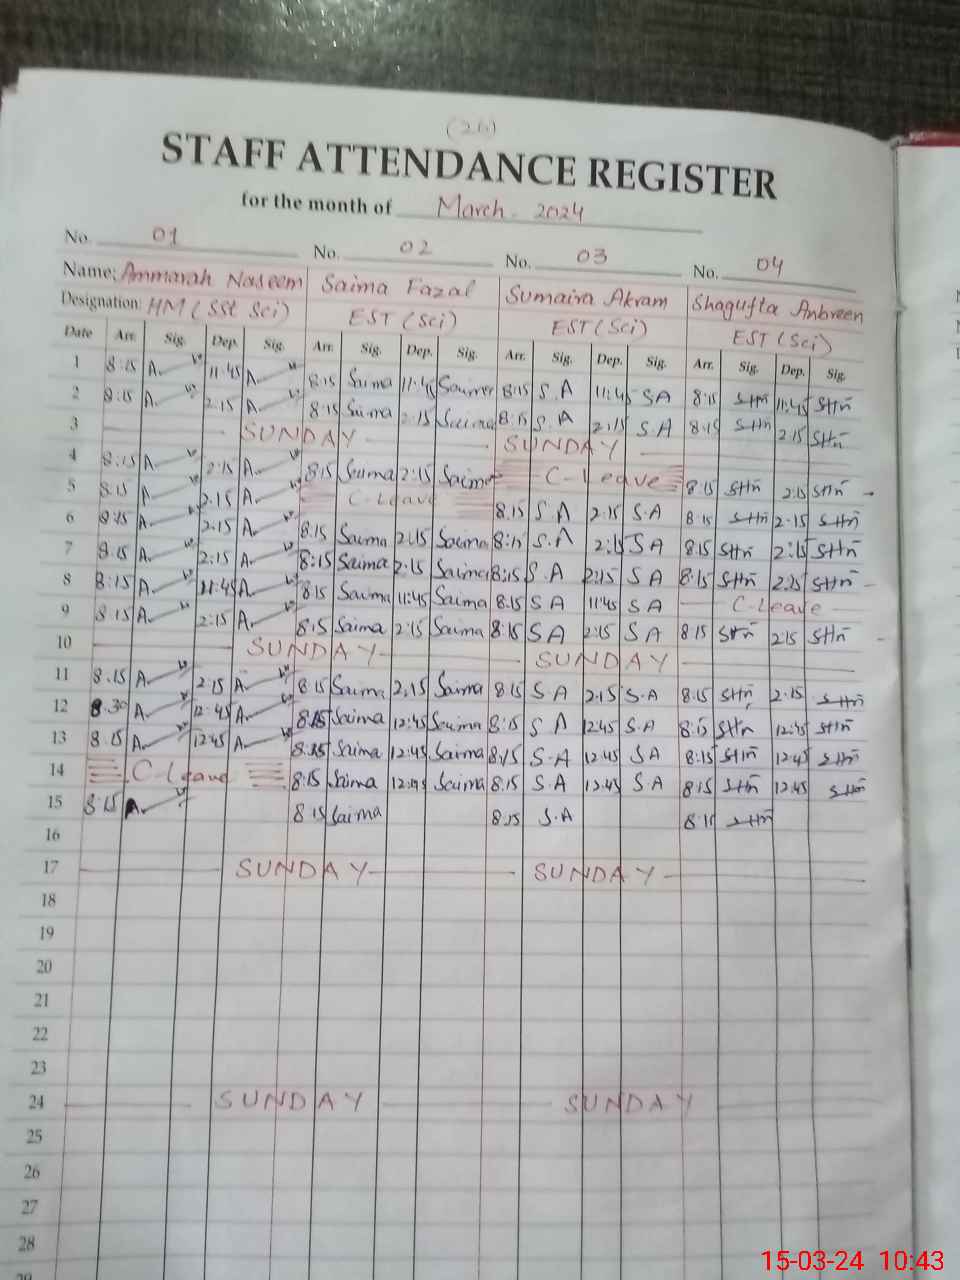 (26)
STAFF ATTENDANCE REGISTER
for the month of March 2024
No. 01 No. 02 No. 03 No. 04
Name: Ammarah Naseem Saima Fazal Sumaira Akram Shagufta Anbreen
Designation: HM (SSt Sci) EST (Sci) EST (Sci) EST (Sci)
Date Arr. Sig. Dep. Sig. Arr. Sig. Dep. Sig. Arr. Sig. Dep. Sig. Arr. Sig. Dep. Sig.
1 8:15 A 11:45 A 8:15 Saima 11:45 Saima 8:15 S.A 11:45 SA 8:15 SHn 11:45 SHn
2 8:15 A 2.15 A 8:15 Saima 2:15 Saima 8:15 S.A 2:15 S.A 8:15 SHn 2:15 SHn
3 SUNDAY SUNDAY
4 8:15 A 2:15 A 8:15 Saima 2:15 Saima C-Leave 8:15 SHn 2:15 SHn
5 8.15 A 2.15 A C-Leave 8.15 S A 2.15 S.A 8:15 SHn 2-15 SHn
6 8:15 A 2.15 A 8.15 Saima 2:15 Saima 8:15 S.A 2:15 S A 8:15 SHn 2:15 SHn
7 8.15 A 2:15 A 8:15 Saima 2:15 Saima 8:15 S A 2:15 S A 8:15 SHn 2:15 SHn
8 8:15 A 11:45 A 8:15 Saima 11:45 Saima 8.15 S A 11:45 S A C-Leave
9 8:15 A 2:15 A 8:15 Saima 2:15 Saima 8:15 S A 2:15 S A 8:15 SHn 2:15 SHn
10 SUNDAY SUNDAY
11 8.15 A 2.15 A 8:15 Saima 2.15 Saima 8.15 S.A 2.15 S.A 8.15 SHn 2.15 SHn
12 8.30 A 12:45 A 8.15 Saima 12:45 Saima 8:15 S A 12:45 S.A 8:15 SHn 12:45 SHn
13 8.15 A 12:45 A 8.15 Saima 12:45 Saima 8:15 S.A 12:45 S A 8:15 SHn 12:45 SHn
14 C-Leave 8:15 Saima 12:45 Saima 8.15 S.A 12:45 S.A 8:15 SHn 12:45 SHn
15 8:15 A 8:15 Saima 8:15 S.A 8:15 SHn
16
17 SUNDAY SUNDAY
18
19
20
21
22
23
24 SUNDAY SUNDAY
25
26
27
28
29
15-03-24 10:43